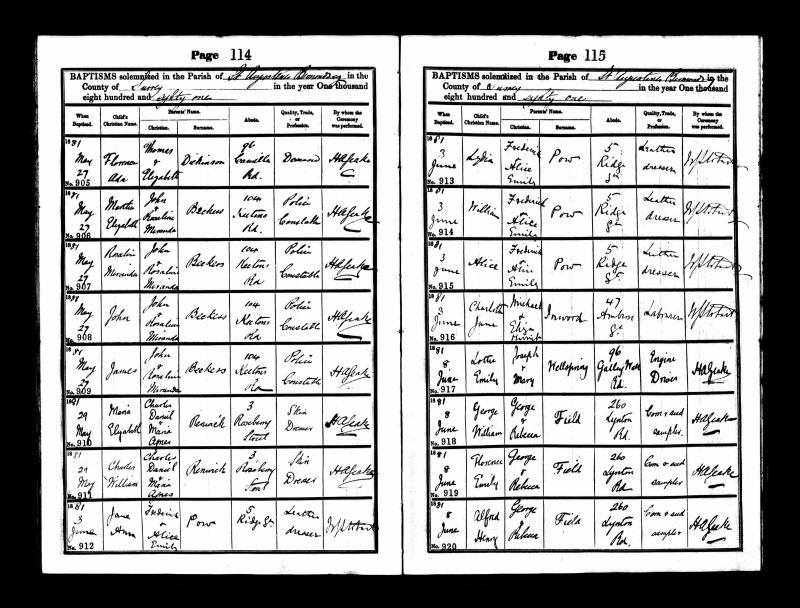 Page 114
BAPTISMS solemnized in the Parish of St Augustines Bermondsey in the
County of Surrey in the year One thousand
eight hundred and eighty one
When Baptized. Child's Christian Name. Parents' Name. Abode. Quality, Trade, or Profession. By whom the Ceremony was performed.
Christian. Surname.
1881 May 27 No. 905 Florence Ada Thomas & Elizabeth Dickinson 96 Rd. H A Geake
1881 May 27 No. 906 Martha Elizabeth John & Rosaline Miranda Beckess 104 Keetons Rd. Police Constable H A Geake
1881 May 27 No. 907 Rosalini Miranda John & Rosalini Miranda Beckess 104 Keetons Rd Police Constable H A Geake
1881 May 27 No. 908 John John & Rosalini Miranda Beckess 104 Keetons Rd Police Constable H A Geake
1881 May 27 No. 909 James John & Rosalini Miranda Beckess 104 Keetons Rd Police Constable H A Geake
1881 29 May No. 910 Maria Elizabeth Charles Daniel & Maria Agnes Renwick 3 Roseberry Street Skin Dresser H A Geake
1881 29 May No. 911 Charles William Charles Daniel & Maria Agnes Renwick 3 Roseberry Street Skin Dresser H A Geake
1881 3 June No. 912 Jane Ann Frederick & Alice Emily Pow 5 Ridge St Leather dresser
Page 115
BAPTISMS solemnized in the Parish of St Augustines Bermondsey in the
County of Surrey in the year One thousand
eight hundred and eighty one
When Baptized. Child's Christian Name. Parents' Name. Abode. Quality, Trade, or Profession. By whom the Ceremony was performed.
Christian. Surname.
1881 3 June No. 913 Lydia Frederick & Alice Emily Pow 5 Ridge St Leather dresser
1881 3 June No. 914 William Frederick & Alice Emily Pow 5 Ridge St Leather dresser
1881 3 June No. 915 Alice Frederick & Alice Emily Pow 5 Ridge St Leather dresser
1881 3 June No. 916 Charlotte Jane Michael & Eliza Harriet Inwood 47 St Labourer
1881 8 June No. 917 Lottie Emily Joseph & Mary Wellspring 96 Galley Wall Rd. Engine Driver H A Geake
1881 8 June No. 918 George William George & Rebecca Field 260 Lynton Rd. Corn & seed sampler H A Geake
1881 8 June No. 919 Florence Emily George & Rebecca Field 260 Lynton Rd Corn & seed sampler H A Geake
1881 8 June No. 920 Alfred Henry George & Rebecca Field 260 Lynton Rd. Corn & seed sampler H A Geake